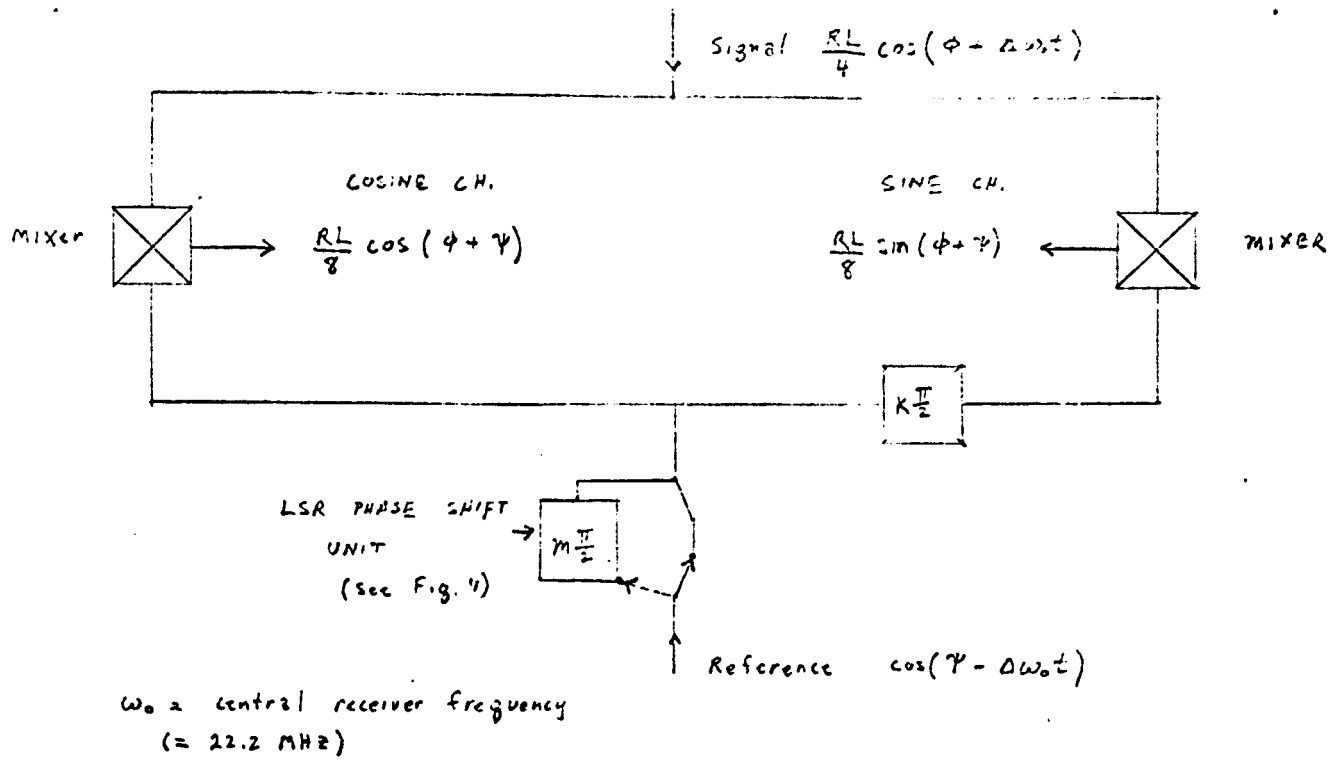 Signal RL/4 cos(φ + Δω₀t)
COSINE CH.
SINE CH.
Mixer
RL/8 cos (φ + ψ)
RL/8 sin(φ + ψ)
MIXER
K π/2
LSR PHASE SHIFT
UNIT
(see Fig. 4)
m π/2
Reference cos(ψ - Δω₀t)
ω₀ = central receiver frequency
(= 22.2 MHz)